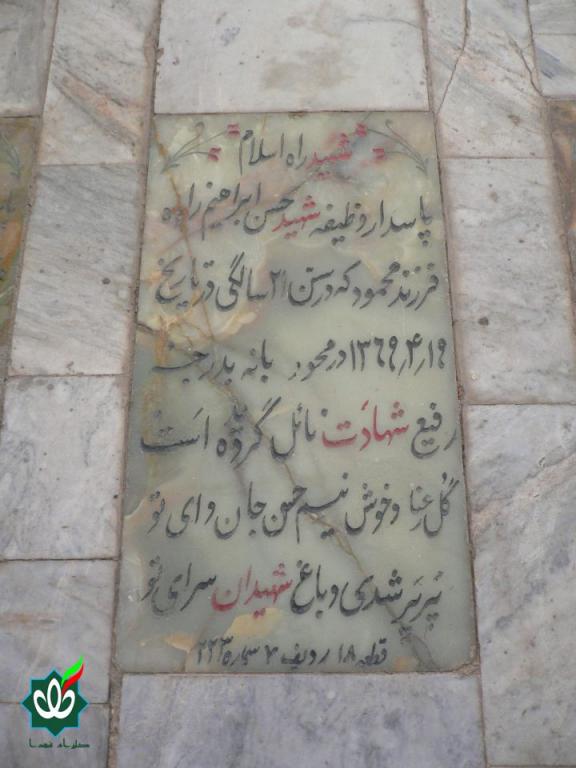 شهید راه اسلام
پاسدار وظیفه شهید حسن ابراهیم زاده
فرزند محمود که در سن ۲۱ سالگی در تاریخ
۱۳۶۹٫۴٫۱۹ در محور بانه بدرجه
رفیع شهادت نائل گردیده است
گل رعنا و خوش نسیم حسن جان وای تو
پَرپَر شدی و باغ شهیدان سرای تو
قطعه ۱۸ ردیف ۷ شماره ۲۲۳
گلزار شهدا